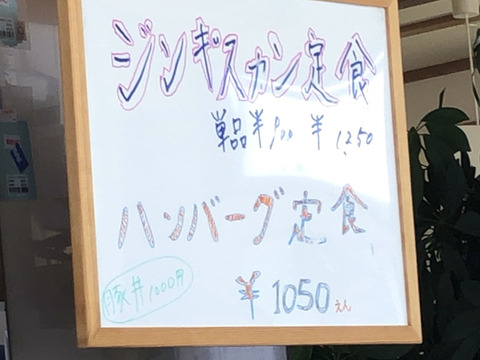 ジンギスカン定食
単品¥900 ¥1250
ハンバーグ定食
豚丼1000円
¥1050えん